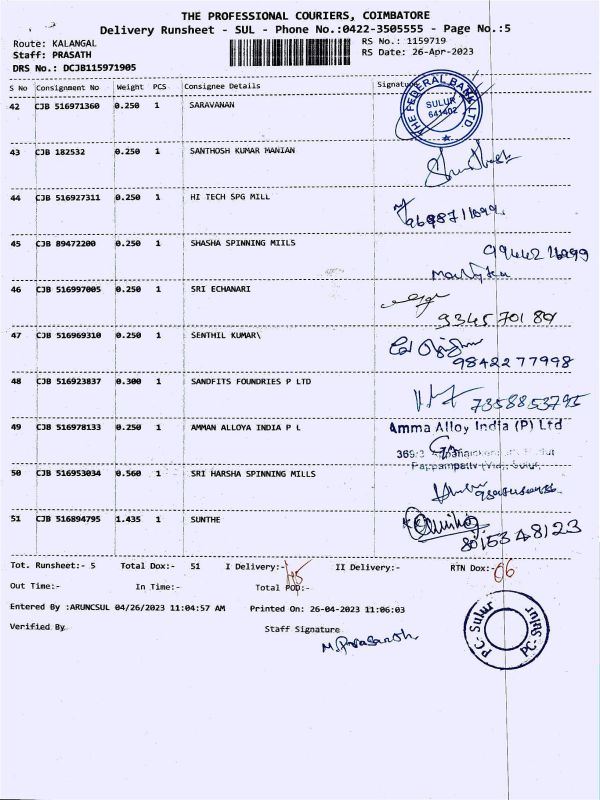 THE PROFESSIONAL COURIERS, COIMBATORE
Delivery Runsheet - SUL - Phone No.:0422-3505555 - Page No.:5
Route: KALANGAL
RS No.: 1159719
Staff: PRASATH
RS Date: 26-Apr-2023
DRS No.: DCJB115971905
S No Consignment No Weight PCS Consignee Details Signature
42 CJB 516971360 0.250 1 SARAVANAN
THE FEDERAL BANK LTD
SULUR
641402
43 CJB 182532 0.250 1 SANTHOSH KUMAR MANIAN
44 CJB 516927311 0.250 1 HI TECH SPG MILL
45 CJB 89472200 0.250 1 SHASHA SPINNING MIILS
46 CJB 516997005 0.250 1 SRI ECHANARI
9345701 89
47 CJB 516969310 0.250 1 SENTHIL KUMAR\
9842277998
48 CJB 516923837 0.300 1 SANDFITS FOUNDRIES P LTD
7358853795
49 CJB 516978133 0.250 1 AMMAN ALLOYA INDIA P L
Amma Alloy India (P) Ltd
Pappampatty (Via), Sulur
50 CJB 516953034 0.560 1 SRI HARSHA SPINNING MILLS
51 CJB 516894795 1.435 1 SUNTHE
8015348123
Tot. Runsheet:- 5 Total Dox:- 51 I Delivery:- 45 II Delivery:- RTN Dox:- 06
Out Time:- In Time:- Total POD:-
Entered By :ARUNCSUL 04/26/2023 11:04:57 AM Printed On: 26-04-2023 11:06:03
Verified By
Staff Signature
PC- Sulur PC- Sulur